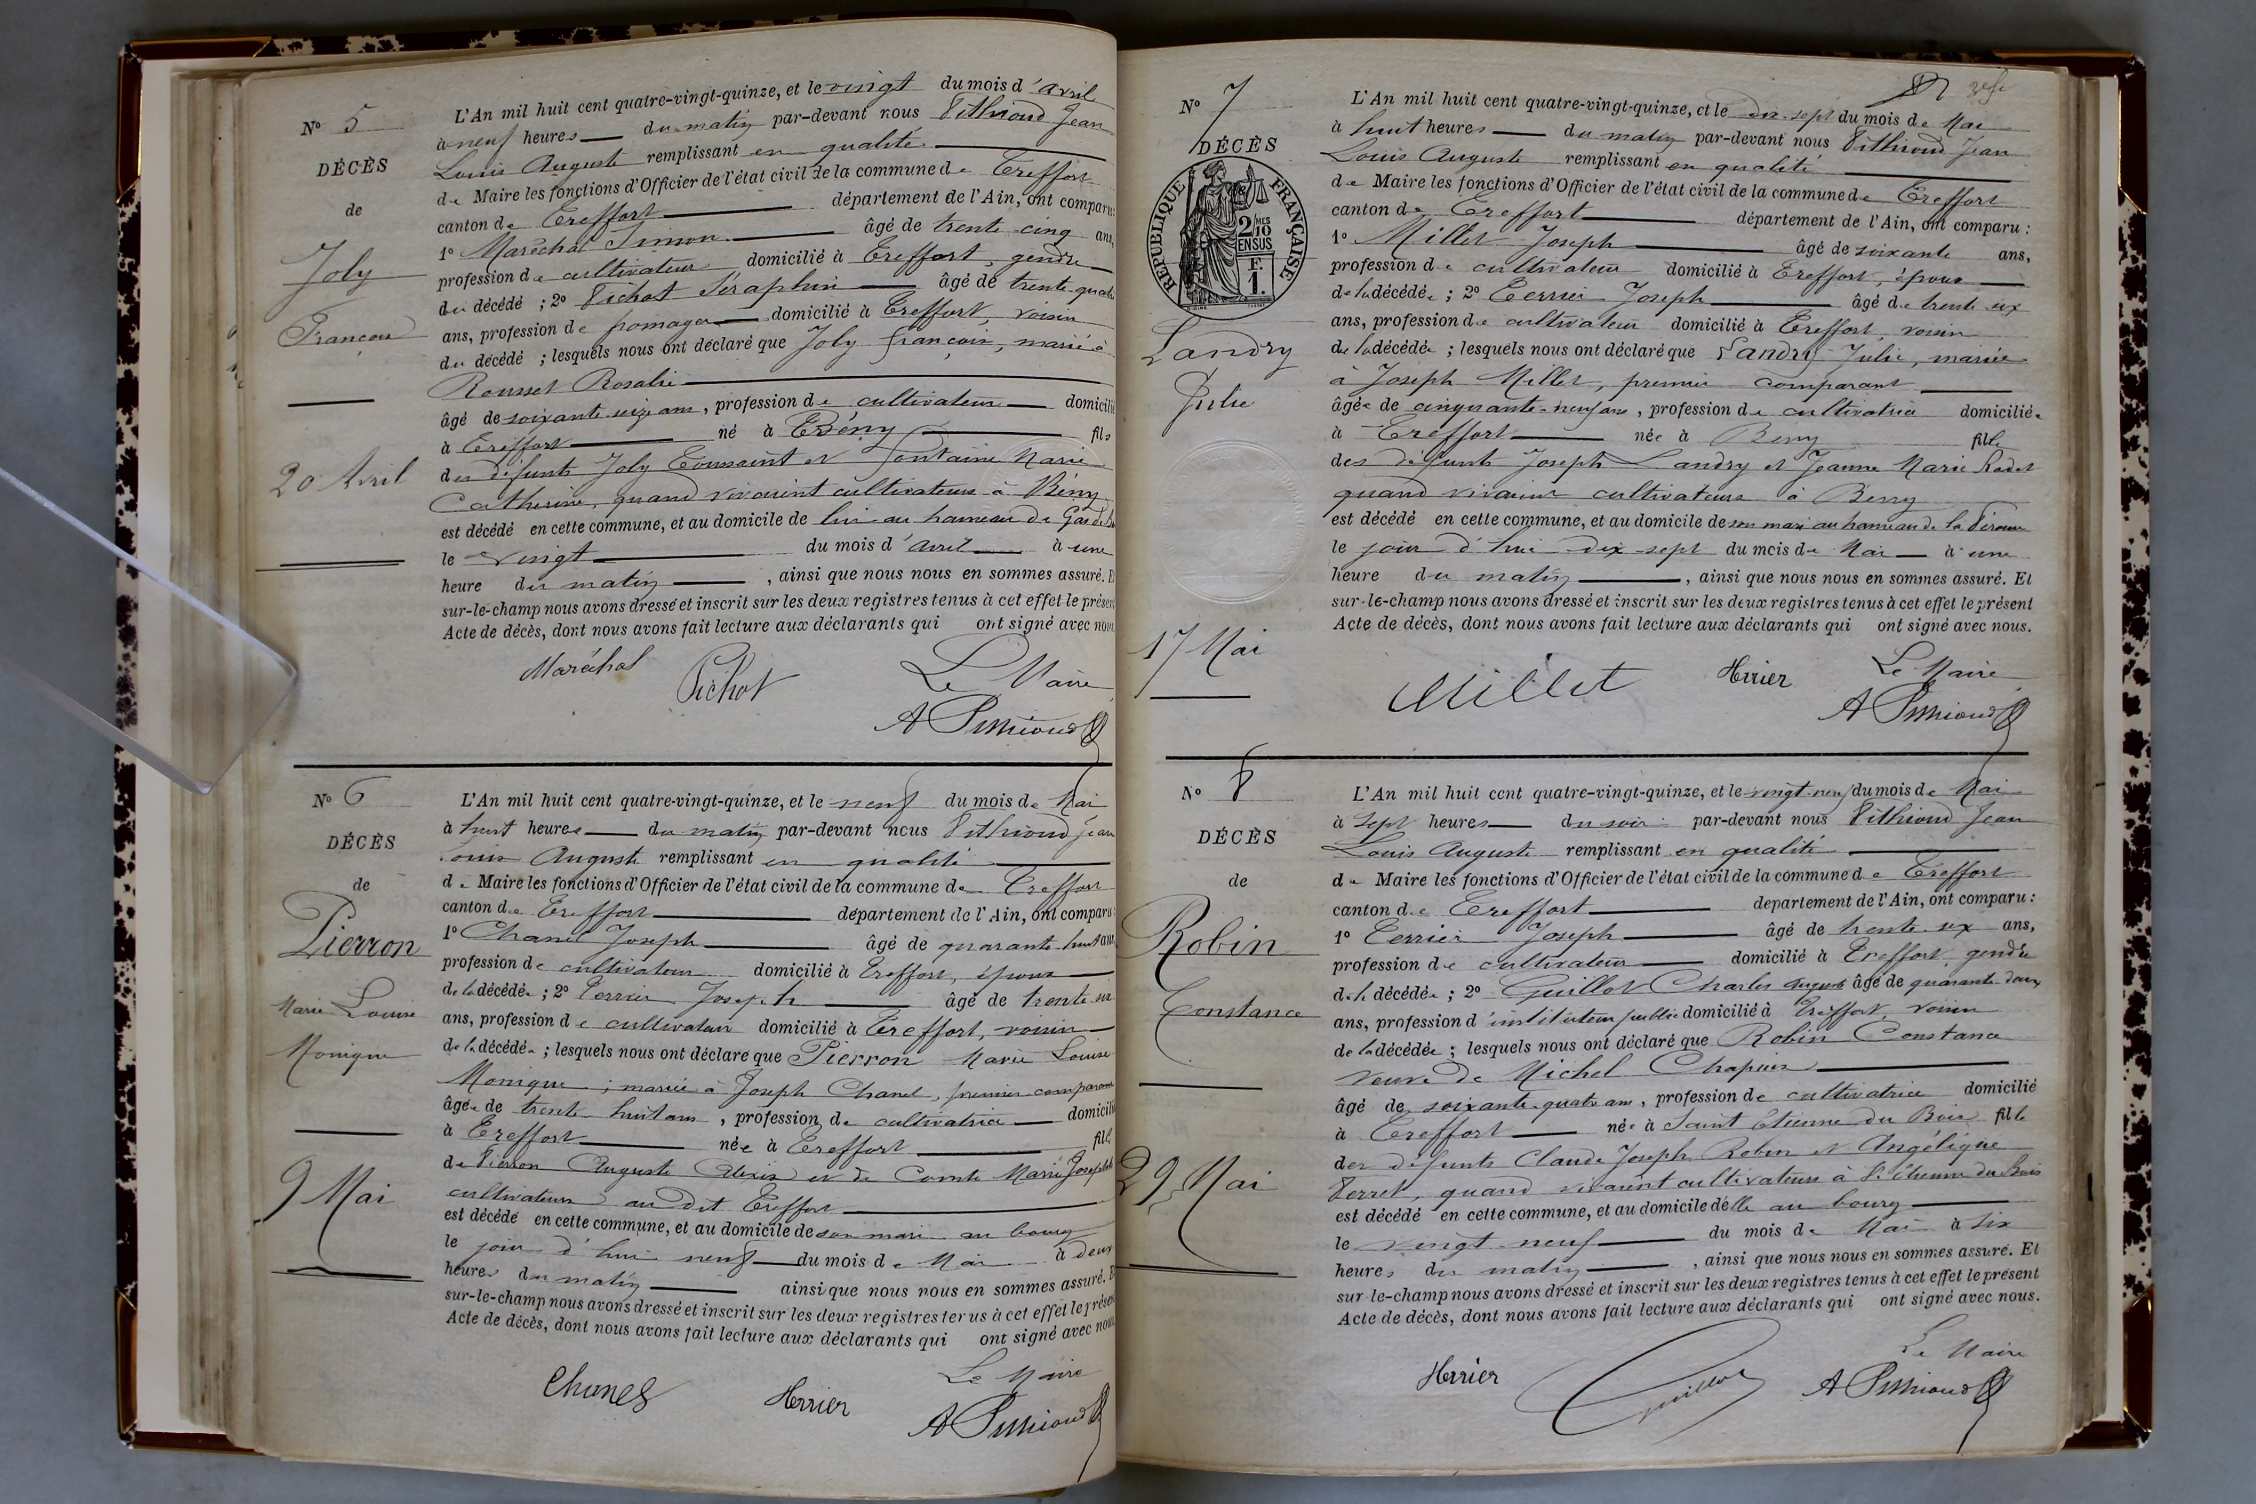 N° 5
DÉCÈS
de
Joly
François
20 Avril
L'An mil huit cent quatre-vingt-quinze, et le vingt du mois d'avril
à neuf heures du matin par-devant nous Pithioud Jean
Louis Auguste remplissant en qualité
de Maire les fonctions d'Officier de l'état civil de la commune de Treffort
canton de Treffort département de l'Ain, ont comparu:
1° Maréchal Simon âgé de trente cinq ans,
profession de cultivateur domicilié à Treffort, gendre
du décédé ; 2° Pichat Séraphin âgé de trente quatre
ans, profession de fromager domicilié à Treffort, voisin
du décédé ; lesquels nous ont déclaré que Joly françois, marié à
Rousset Rosalie
âgé de soixante seize ans, profession de cultivateur domicilié
à Treffort né à Bény fils
des défunts Joly Toussaint et Fontaine Marie
Catherine, quand vivaient cultivateurs à Bény
est décédé en cette commune, et au domicile de lui au hameau de
le vingt du mois d'avril à une
heure du matin, ainsi que nous nous en sommes assuré. Et
sur-le-champ nous avons dressé et inscrit sur les deux registres tenus à cet effet le présent
Acte de décès, dont nous avons fait lecture aux déclarants qui ont signé avec nous.
Maréchal Pichat Le Maire
A Pithioud
N° 6
DÉCÈS
de
Pierron
Marie Louise
Monique
9 Mai
L'An mil huit cent quatre-vingt-quinze, et le neuf du mois de Mai
à huit heures du matin par-devant nous Pithioud Jean
Louis Auguste remplissant en qualité
de Maire les fonctions d'Officier de l'état civil de la commune de Treffort
canton de Treffort département de l'Ain, ont comparu:
1° Chanel Joseph âgé de quarante huit ans
profession de cultivateur domicilié à Treffort, époux
de la décédée ; 2° Terrier Joseph âgé de trente six
ans, profession de cultivateur domicilié à Treffort, voisin
de la décédée ; lesquels nous ont déclaré que Pierron Marie Louise
Monique ; mariée à Joseph Chanel, premier comparant
âgée de trente huit ans, profession de cultivatrice domicilié
à Treffort née à Treffort fille
de Pierron Auguste Alexis et de Comte Marie Josephte
cultivateurs au dit Treffort
est décédé en cette commune, et au domicile de son mari au bourg
le jour d'hui neuf du mois de Mai à deux
heures du matin ainsi que nous nous en sommes assuré. Et
sur-le-champ nous avons dressé et inscrit sur les deux registres tenus à cet effet le présent
Acte de décès, dont nous avons fait lecture aux déclarants qui ont signé avec nous
Chanel Terrier Le Maire
A Pithioud
N° 7
DÉCÈS
REPUBLIQUE FRANÇAISE
2/10 MES EN SUS
1 F.
Landry
Julie
17 Mai
L'An mil huit cent quatre-vingt-quinze, et le dix-sept du mois de Mai
à huit heures du matin par-devant nous Pithioud Jean
Louis Auguste remplissant en qualité
de Maire les fonctions d'Officier de l'état civil de la commune de Treffort
canton de Treffort département de l'Ain, ont comparu :
1° Millet Joseph âgé de soixante ans,
profession de cultivateur domicilié à Treffort, époux
de la décédée ; 2° Terrier Joseph âgé de trente six
ans, profession de cultivateur domicilié à Treffort, voisin
de la décédée ; lesquels nous ont déclaré que Landry Julie, mariée
à Joseph Millet, premier comparant
âgée de cinquante-neuf ans, profession de cultivatrice domiciliée
à Treffort née à Beny fille
des défunts Joseph Landry et Jeanne Marie Rodet
quand vivaient cultivateurs à Beny
est décédé en cette commune, et au domicile de son mari au hameau de la
le jour d'hui dix-sept du mois de Mai à une
heure du matin, ainsi que nous nous en sommes assuré. Et
sur-le-champ nous avons dressé et inscrit sur les deux registres tenus à cet effet le présent
Acte de décès, dont nous avons fait lecture aux déclarants qui ont signé avec nous.
Millet Terrier Le Maire
A Pithioud
N° 8
DÉCÈS
de
Robin
Constance
29 Mai
L'An mil huit cent quatre-vingt-quinze, et le vingt-neuf du mois de Mai
à sept heures du soir par-devant nous Pithioud Jean
Louis Auguste remplissant en qualité
de Maire les fonctions d'Officier de l'état civil de la commune de Treffort
canton de Treffort département de l'Ain, ont comparu :
1° Terrier Joseph âgé de trente six ans,
profession de cultivateur domicilié à Treffort, gendre
de la décédée ; 2° Guillot Charles August âgé de quarante deux
ans, profession d'instituteur public domicilié à Treffort, voisin
de la décédée ; lesquels nous ont déclaré que Robin Constance
veuve de Michel Chapuis
âgé de soixante-quatre ans, profession de cultivatrice domicilié
à Treffort née à Saint Etienne du Bois fille
des défunts Claude Joseph Robin et Angélique
Perret, quand vivaient cultivateurs à St Etienne du Bois
est décédé en cette commune, et au domicile d'elle au bourg
le vingt-neuf du mois de Mai à six
heures du matin, ainsi que nous nous en sommes assuré. Et
sur-le-champ nous avons dressé et inscrit sur les deux registres tenus à cet effet le présent
Acte de décès, dont nous avons fait lecture aux déclarants qui ont signé avec nous.
Terrier Guillot Le Maire
A Pithioud